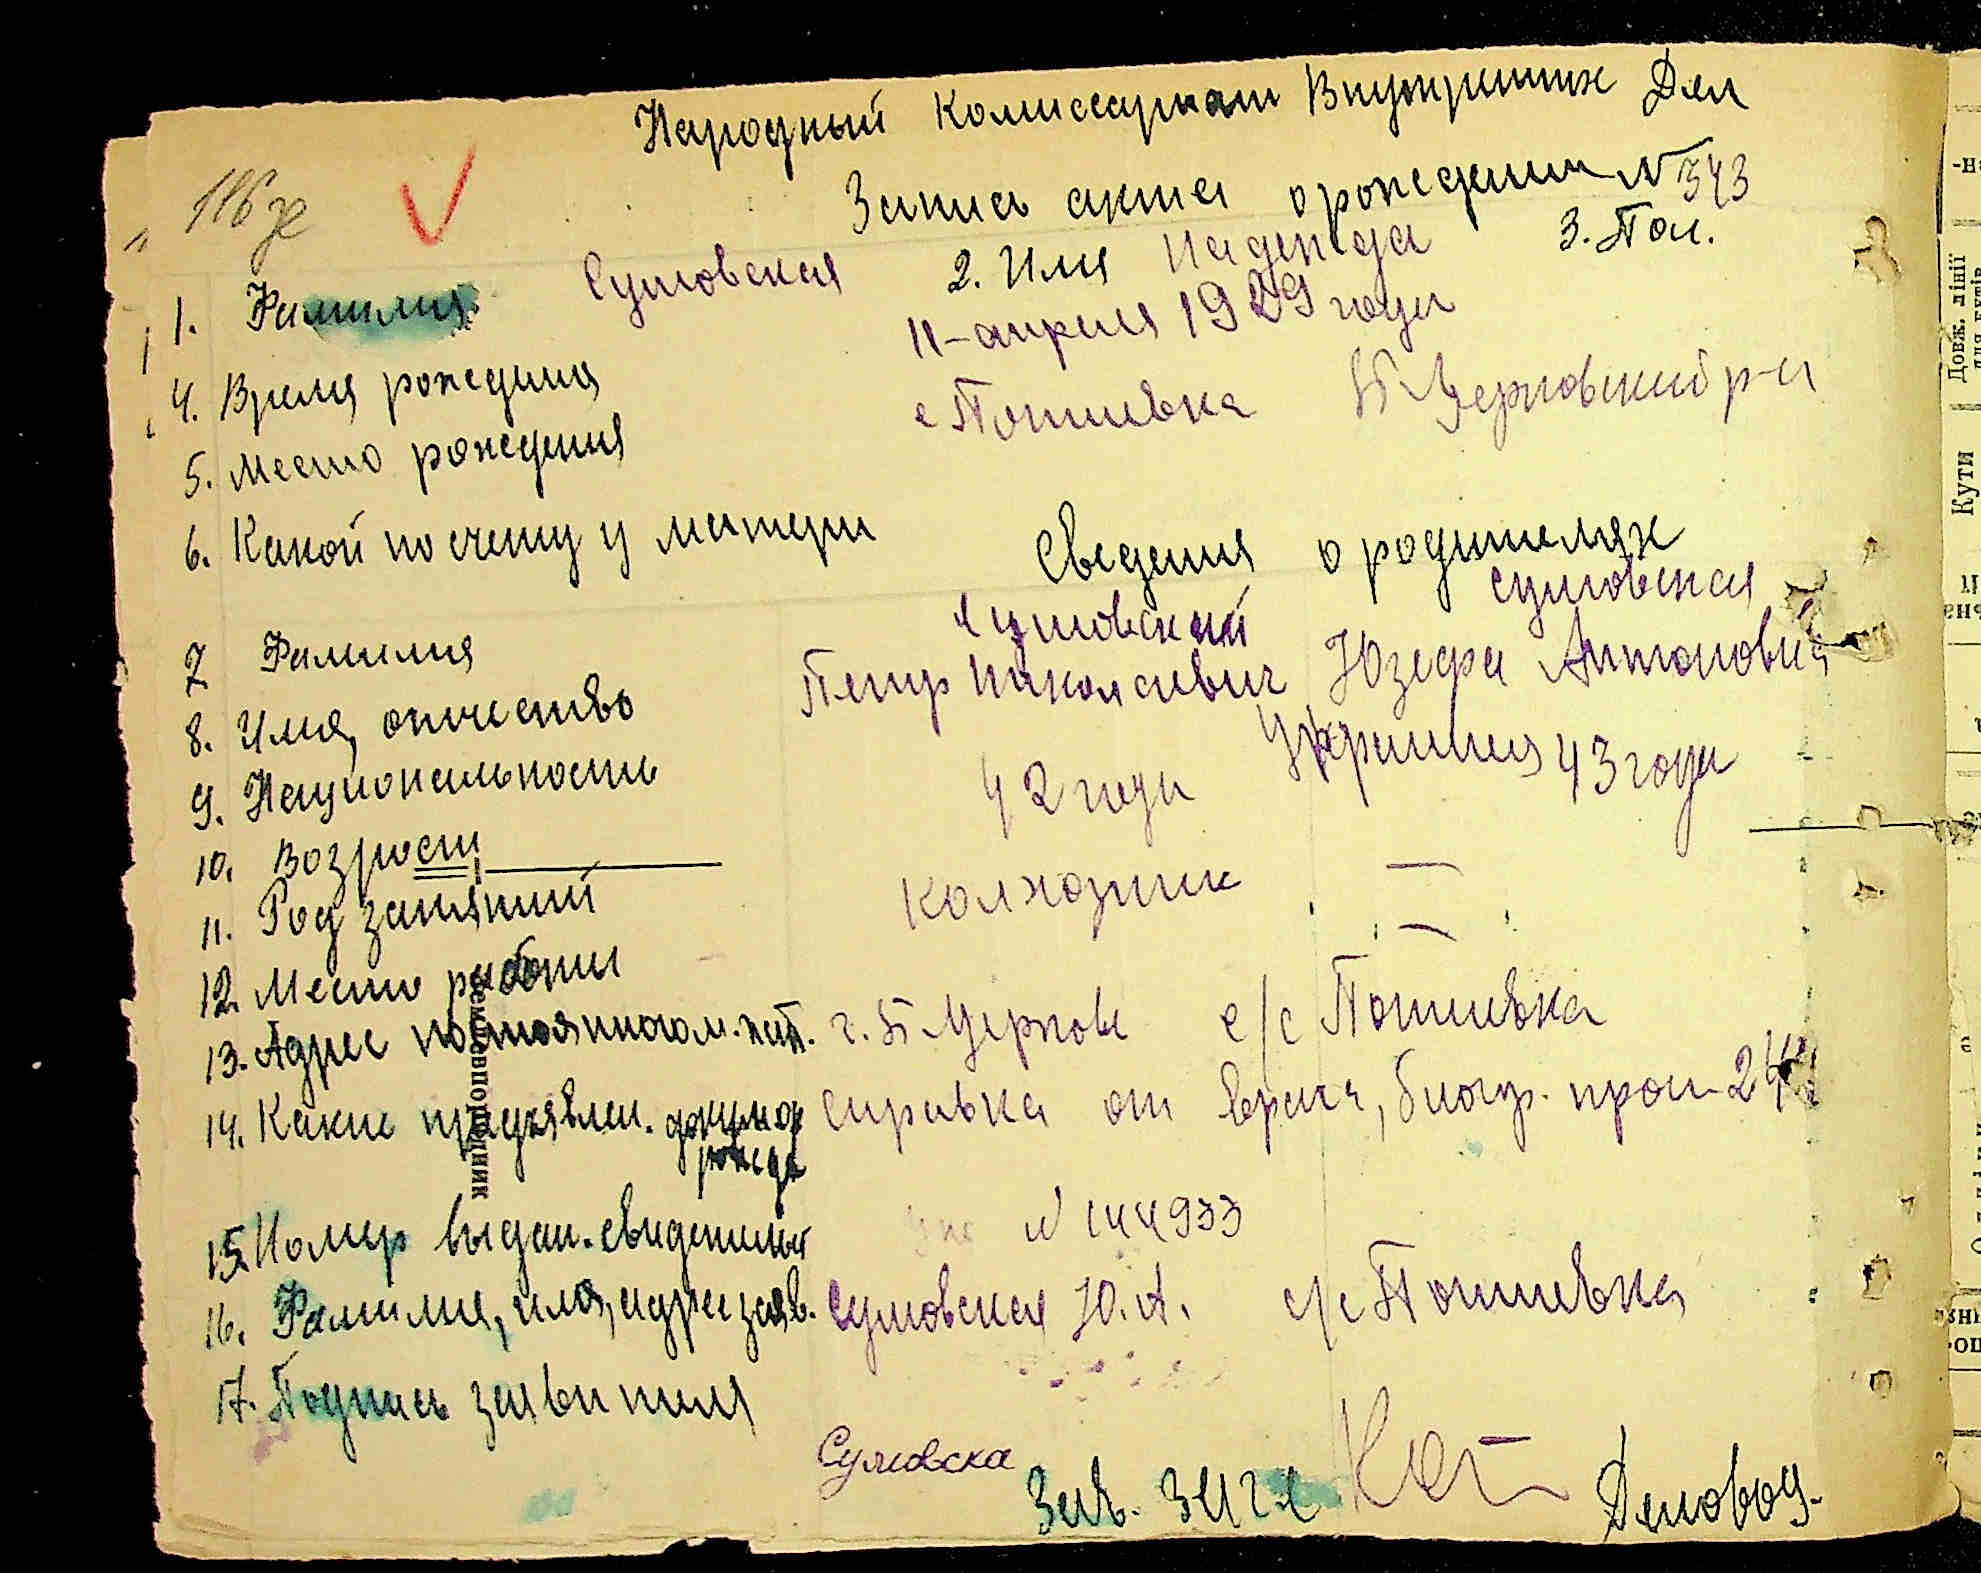 116 же
Народный Комиссариат Внутриних Дел
Запись акта о рождении N 343
1. Фамилия Сумовская 2. Имя Надежда 3. Пол.
4. Время рождения 11-апреля 1929 года
5. Место рождения с Потиевка Б-Церковский р-н
6. Какой по счету у матери
Сведения о родителях
7 Фамилия Сумовский Сумовская
8. Имя, отчество Петр Николаевич Юзефа Антоновна
9. Национальность Украинцы
10. Возраст 42 года 43 года
11. Род занятий колхозник —
12. Место работы —
13. Адрес постоянного м. жит. г. Б Церковь с/с Потиевка
14. Какие предъявлен. докумор справка от врача,
рожда
15. Номер выдан. свидетельст N 144933
16. Фамилия, имя, адрес заяв. Сумовская Ю. А. с/с Потиевка
17. Подпись заявителя
Сумовска
Зав. ЗАГСА Деловод.
Довж. лінії
Кути